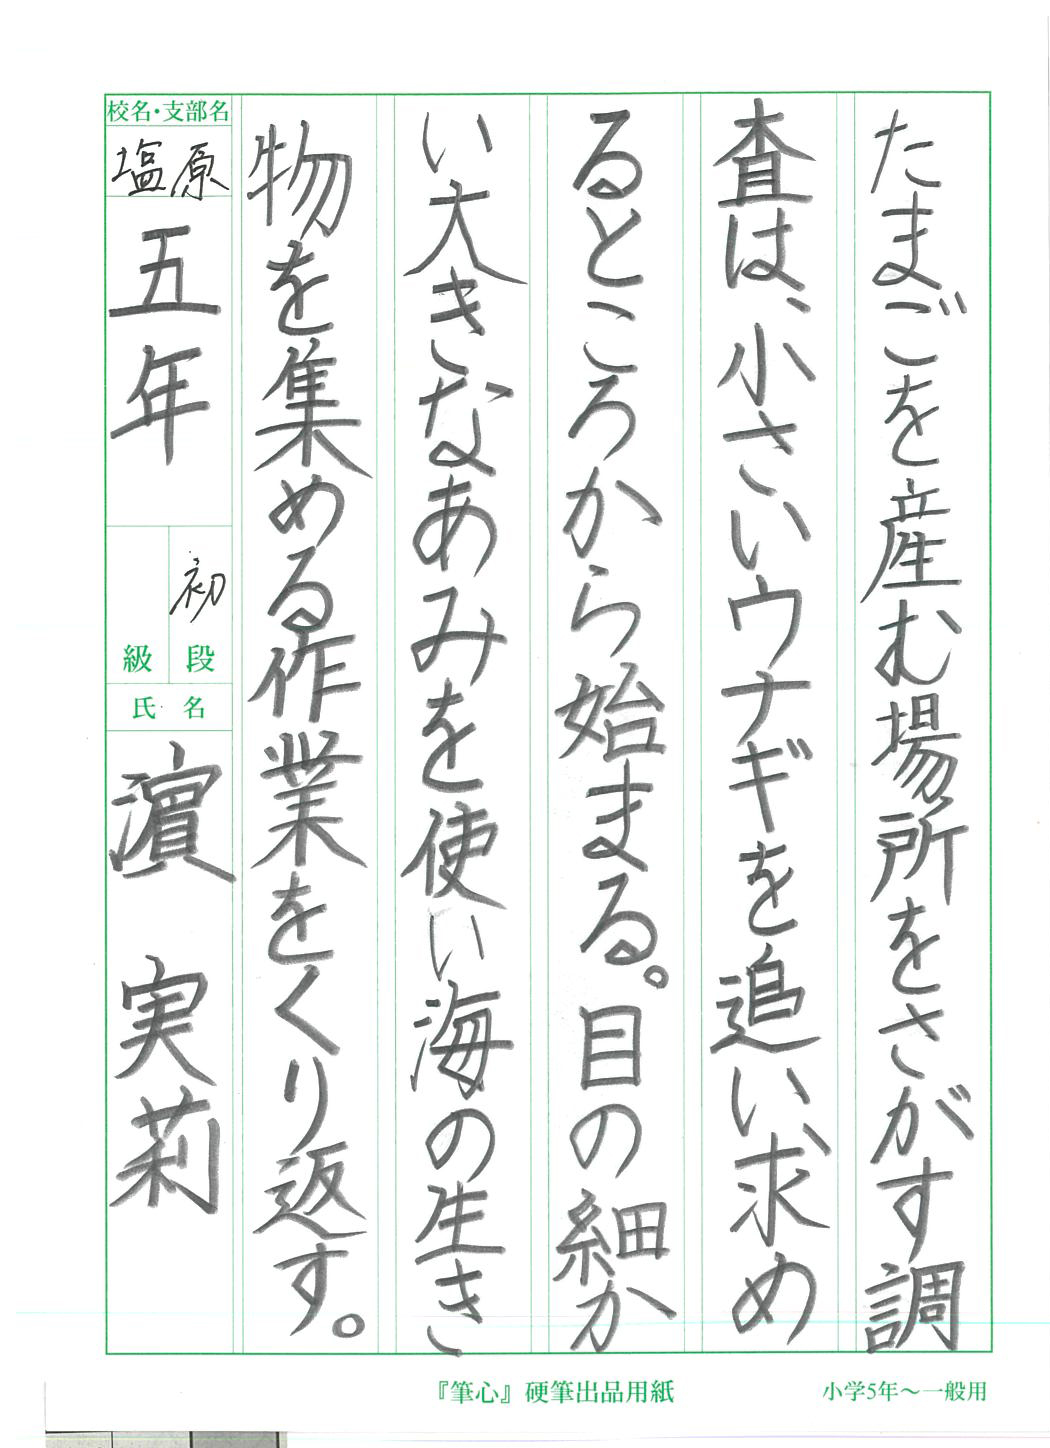 たまごを産む場所をさがす調
査は、小さいウナギを追い求め
るところから始まる。目の細か
い大きなあみを使い海の生き
物を集める作業をくり返す。
校名・支部名
塩原
五年
初
段
級
氏名
濵 実莉
『筆心』硬筆出品用紙
小学5年〜一般用